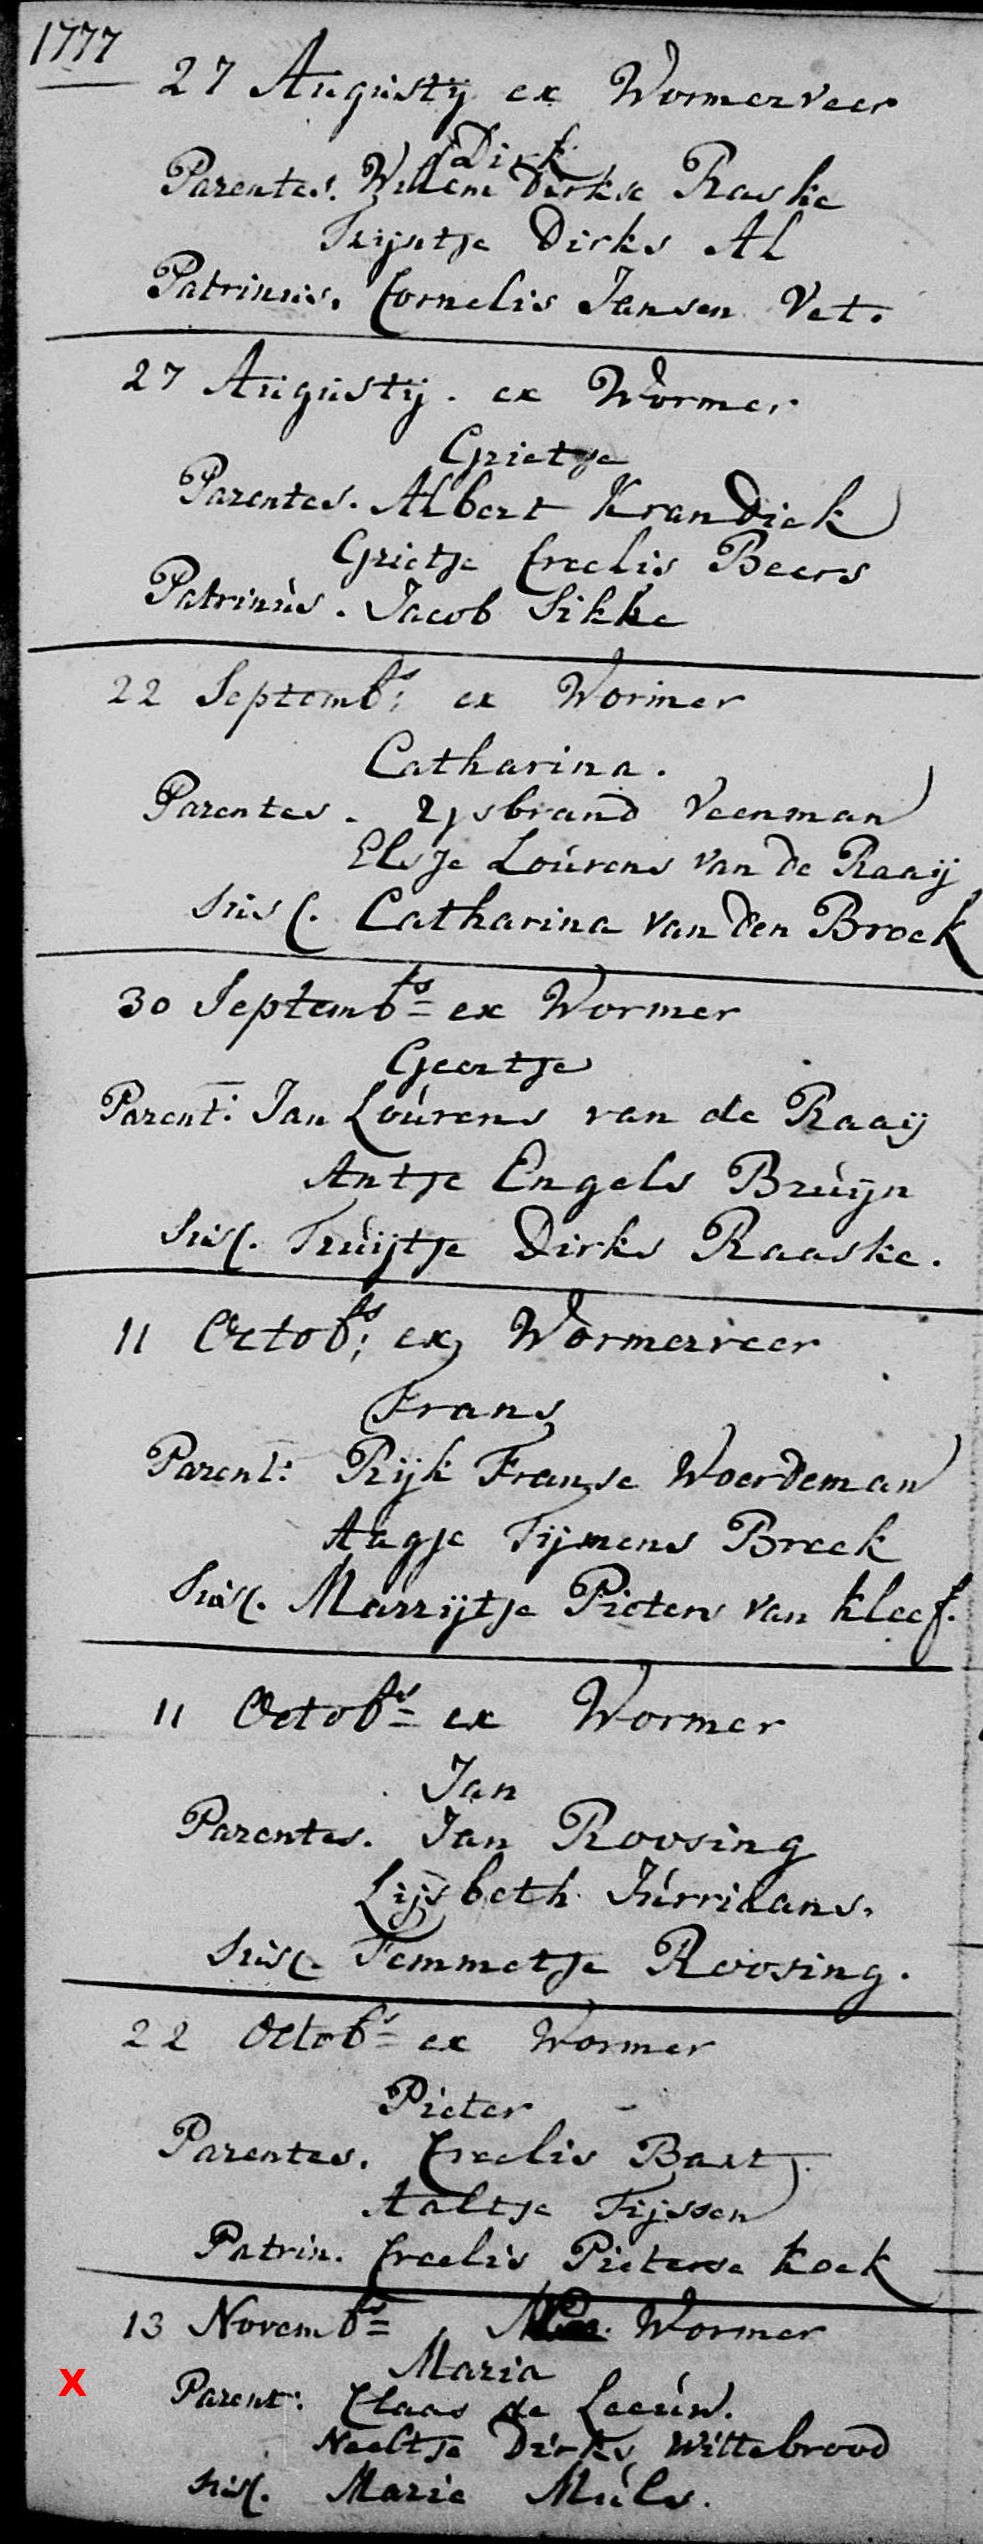 1777
27 Augusty ex Wormerveer
Dirk
Parentes. Willem Dirkse Raske
Trijntje Dirks Al
Patrinus. Cornelis Jansen Vet.
27 Augustij. ex Wormer
Grietje
Parentes. Albert Krandiek
Grietje Creelis Beers
Patrinús. Jacob Sikke
22 Septembs: ex Wormer
Catharina.
Parentes. Ysbrand Veenman
Elsje Loúrens van de Raaij
Susc. Catharina van den Broek
30 Septembs= ex Wormer
Geertje
Parent: Jan Loúrens van de Raaij
Antje Engels Brúijn
Susc. Trúijtje Dirks Raaske.
11 Octobs: ex Wormerveer
Frans
Parent: Rijk Franse Woerdeman
Aagje Tijmens Breek
Susc. Marrijtje Pieters van Kleef.
11 Octobs= ex Wormer
Jan
Parentes. Jan Roosing
Lijsbeth Júrriaans.
Susc. Femmetje Roosing.
22 Octobs= ex Wormer
Pieter
Parentes. Creelis Bart
Aaltje Tijssen
Patrin. Creelis Pieterse Koek
13 Novembs= Wormer
Maria
X Parent: Claas de Leeúw.
Neeltje Dirks Wittebrood
Susc. Marie Múls.